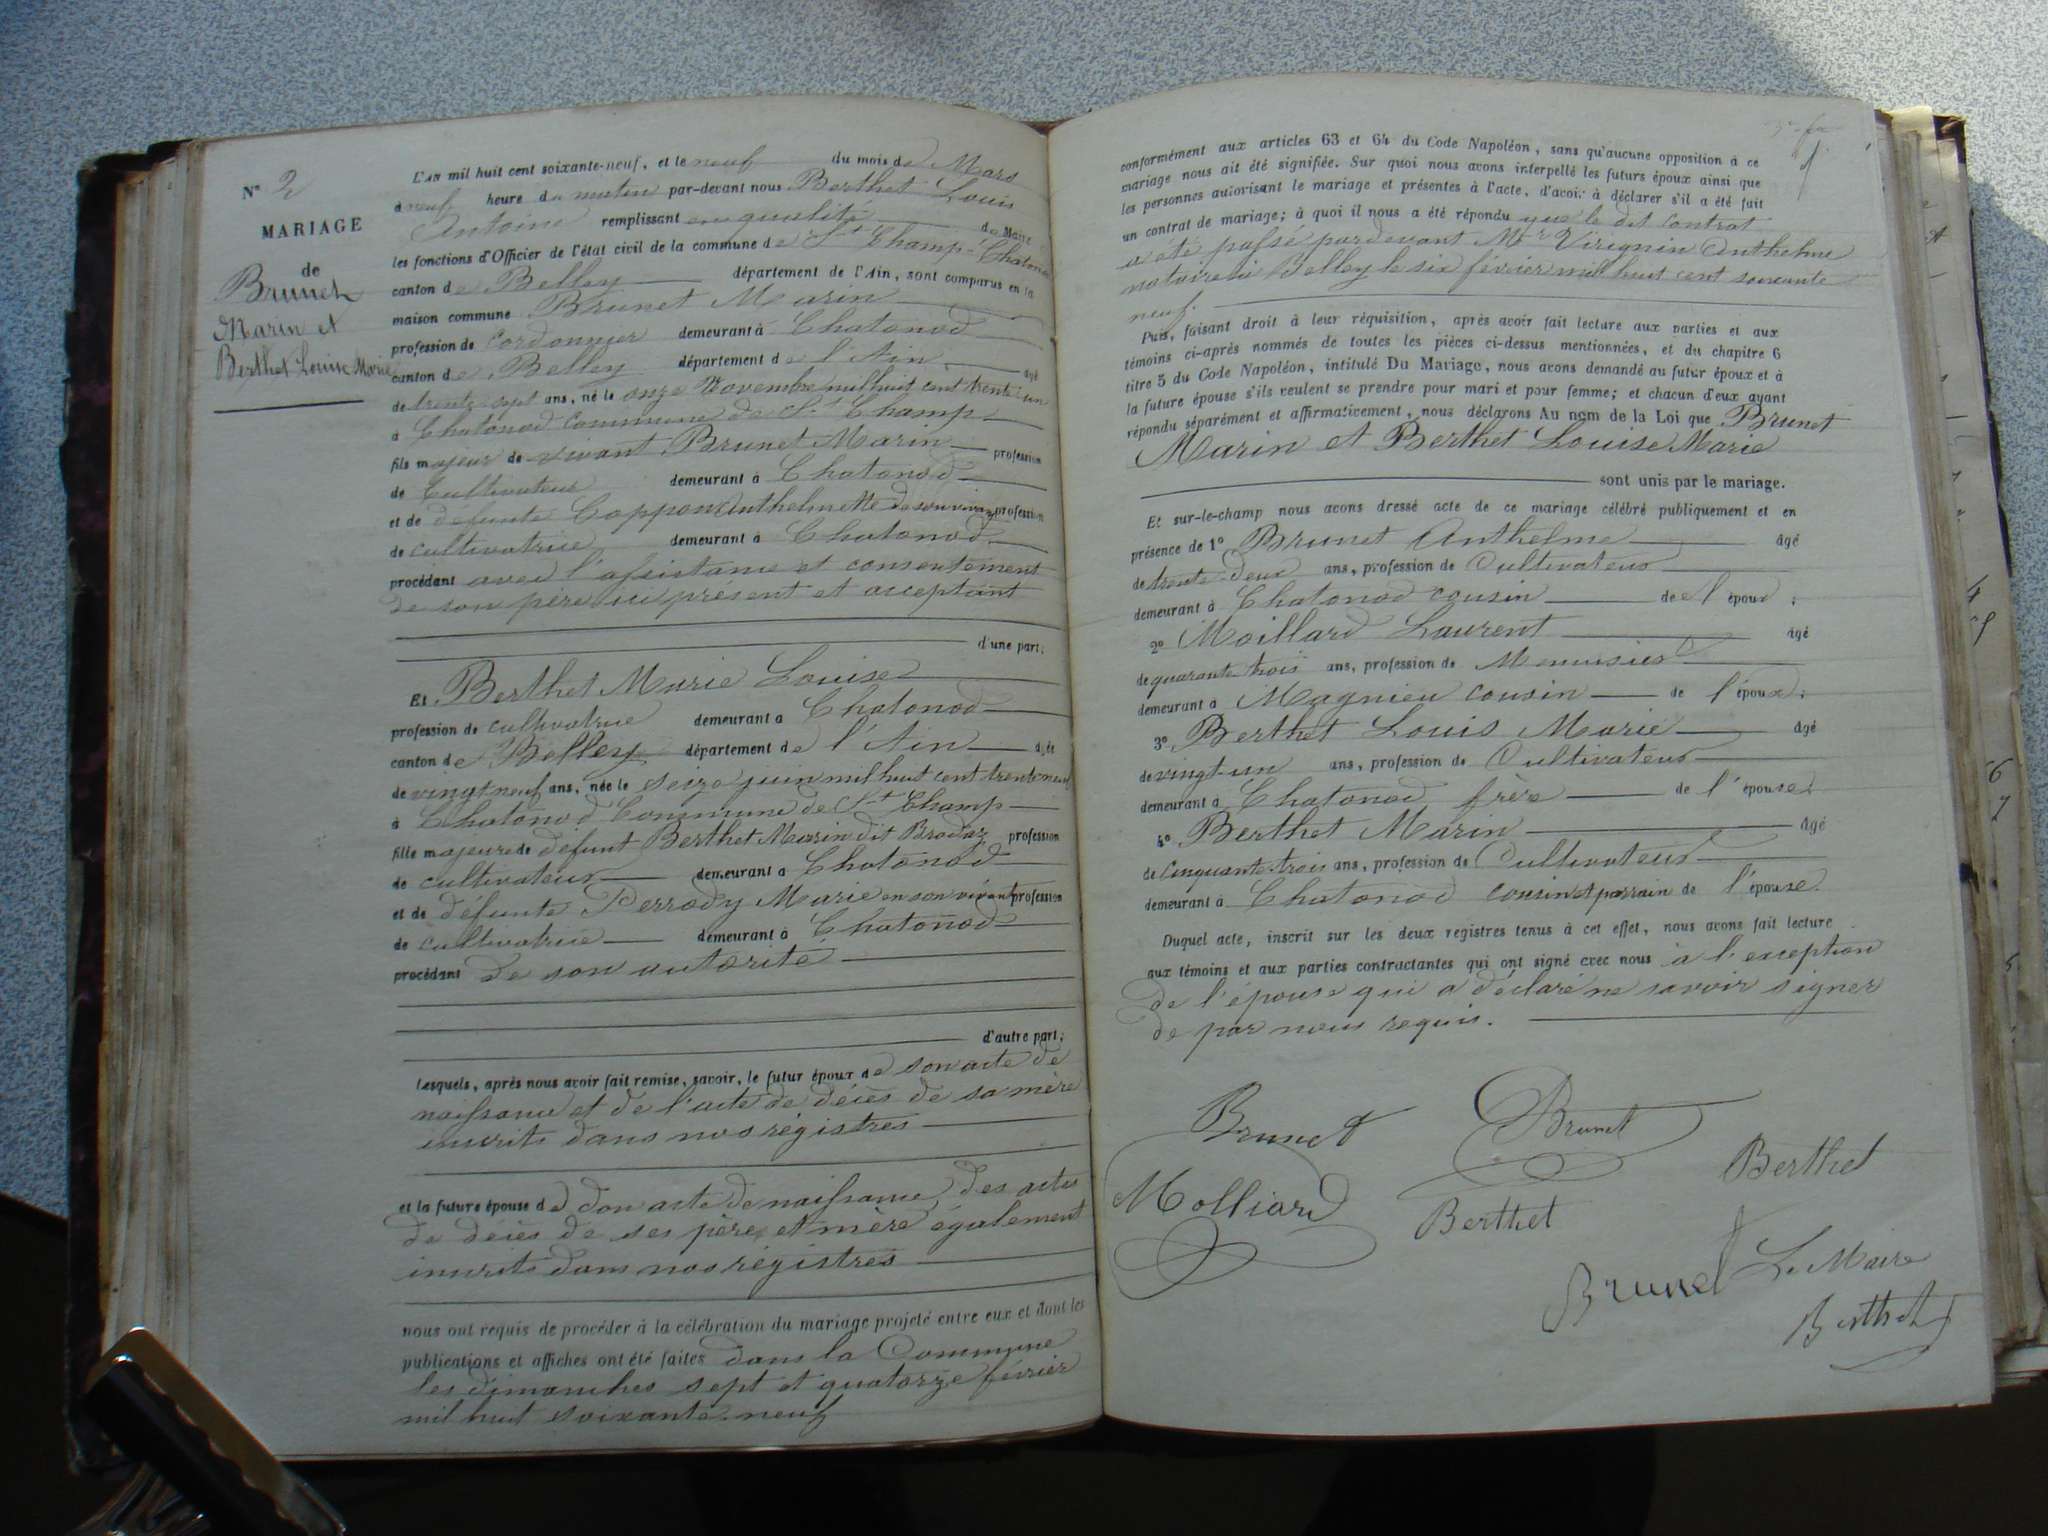 N° 2
MARIAGE
de
Brunet
Marin et
Berthet Louise Marie
L'An mil huit cent soixante-neuf, et le neuf du mois de Mars
à neuf heure du matin par-devant nous Berthet Louis
Antoine remplissant en qualité de Maire
les fonctions d'Officier de l'état civil de la commune de St Champ-Chatonod
canton de Belley département de l'Ain, sont comparus en la
maison commune Brunet Marin
profession de cordonnier demeurant à Chatonod
canton de Belley département de l'Ain âgé
de trente-sept ans, né le onze Novembre mil huit cent trente-un
à Chatonod commune de St Champ
fils majeur de vivant Brunet Marin profession
de Cultivateur demeurant à Chatonod
et de défunte Coppon Anthelmette de son vivant profession
de cultivatrice demeurant à Chatonod
procédant avec l'assistance et consentement
de son père ici présent et acceptant
d'une part;
Et Berthet Marie Louise
profession de cultivatrice demeurant à Chatonod
canton de Belley département de l'Ain âgée
de vingt neuf ans, née le seize juin mil huit cent trente neuf
à Chatonod Commune de St Champ
fille majeure de défunt Berthet Marin dit Brodaz profession
de cultivateur demeurant à Chatonod
et de défunte Perrody Marie en son vivant profession
de cultivatrice demeurant à Chatonod
procédant de son autorité
d'autre part;
Lesquels, après nous avoir fait remise, savoir, le futur époux de son acte de
naissance et de l'acte de décès de sa mère
inscrits dans nos régistres
et la future épouse de son acte de naissance, des actes
de décès de ses père et mère également
inscrits dans nos régistres
nous ont requis de procéder à la célébration du mariage projeté entre eux et dont les
publications et affiches ont été faites dans la Commune
les dimanches sept et quatorze février
mil huit soixante-neuf
conformément aux articles 63 et 64 du Code Napoléon, sans qu'aucune opposition à ce
mariage nous ait été signifiée. Sur quoi nous avons interpellé les futurs époux ainsi que
les personnes autorisant le mariage et présentes à l'acte, d'avoir à déclarer s'il a été fait
un contrat de mariage; à quoi il nous a été répondu que le dit contrat
a été passé pardevant Mr Virignin Anthelme
notaire à Belley le six février mil huit cent soixante
neuf.
Puis, faisant droit à leur réquisition, après avoir fait lecture aux parties et aux
témoins ci-après nommés de toutes les pièces ci-dessus mentionnées, et du chapitre 6
titre 5 du Code Napoléon, intitulé Du Mariage, nous avons demandé au futur époux et à
la future épouse s'ils veulent se prendre pour mari et pour femme; et chacun d'eux ayant
répondu séparément et affirmativement, nous déclarons Au nom de la Loi que Brunet
Marin et Berthet Louise Marie
sont unis par le mariage.
Et sur-le-champ nous avons dressé acte de ce mariage célébré publiquement et en
présence de 1° Brunet Anthelme âgé
de trente-deux ans, profession de Cultivateur
demeurant à Chatonod cousin de l'époux;
2° Moillard Laurent âgé
de quarante trois ans, profession de Menuisier
demeurant à Magnieu cousin de l'époux;
3° Berthet Louis Marie âgé
de vingt-un ans, profession de Cultivateur
demeurant à Chatonod frère de l'épouse;
4° Berthet Marin âgé
de Cinquante-trois ans, profession de Cultivateur
demeurant à Chatonod cousin et parrain de l'épouse.
Duquel acte, inscrit sur les deux registres tenus à cet effet, nous avons fait lecture
aux témoins et aux parties contractantes qui ont signé avec nous à l'exception
de l'épouse qui a déclaré ne savoir signer
de par nous requis.
Brunet Brunet
Berthet
Molliard Berthet
Brunet Le Maire
Berthet